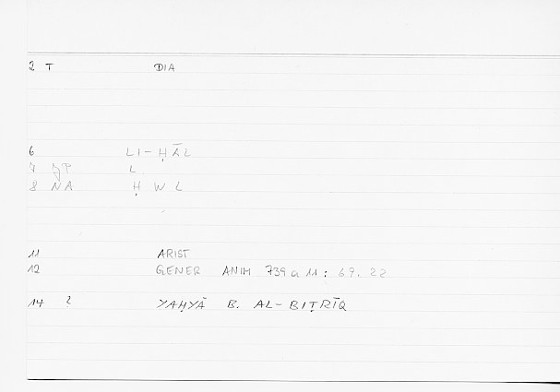 2 T DIA
6 LI-ḤĀL
7 JP L
8 NA Ḥ W L
11 ARIST
12 GENER ANIM 739 a 11 : 69.22
14 2 YAḤYĀ B. AL-BIṬRĪQ